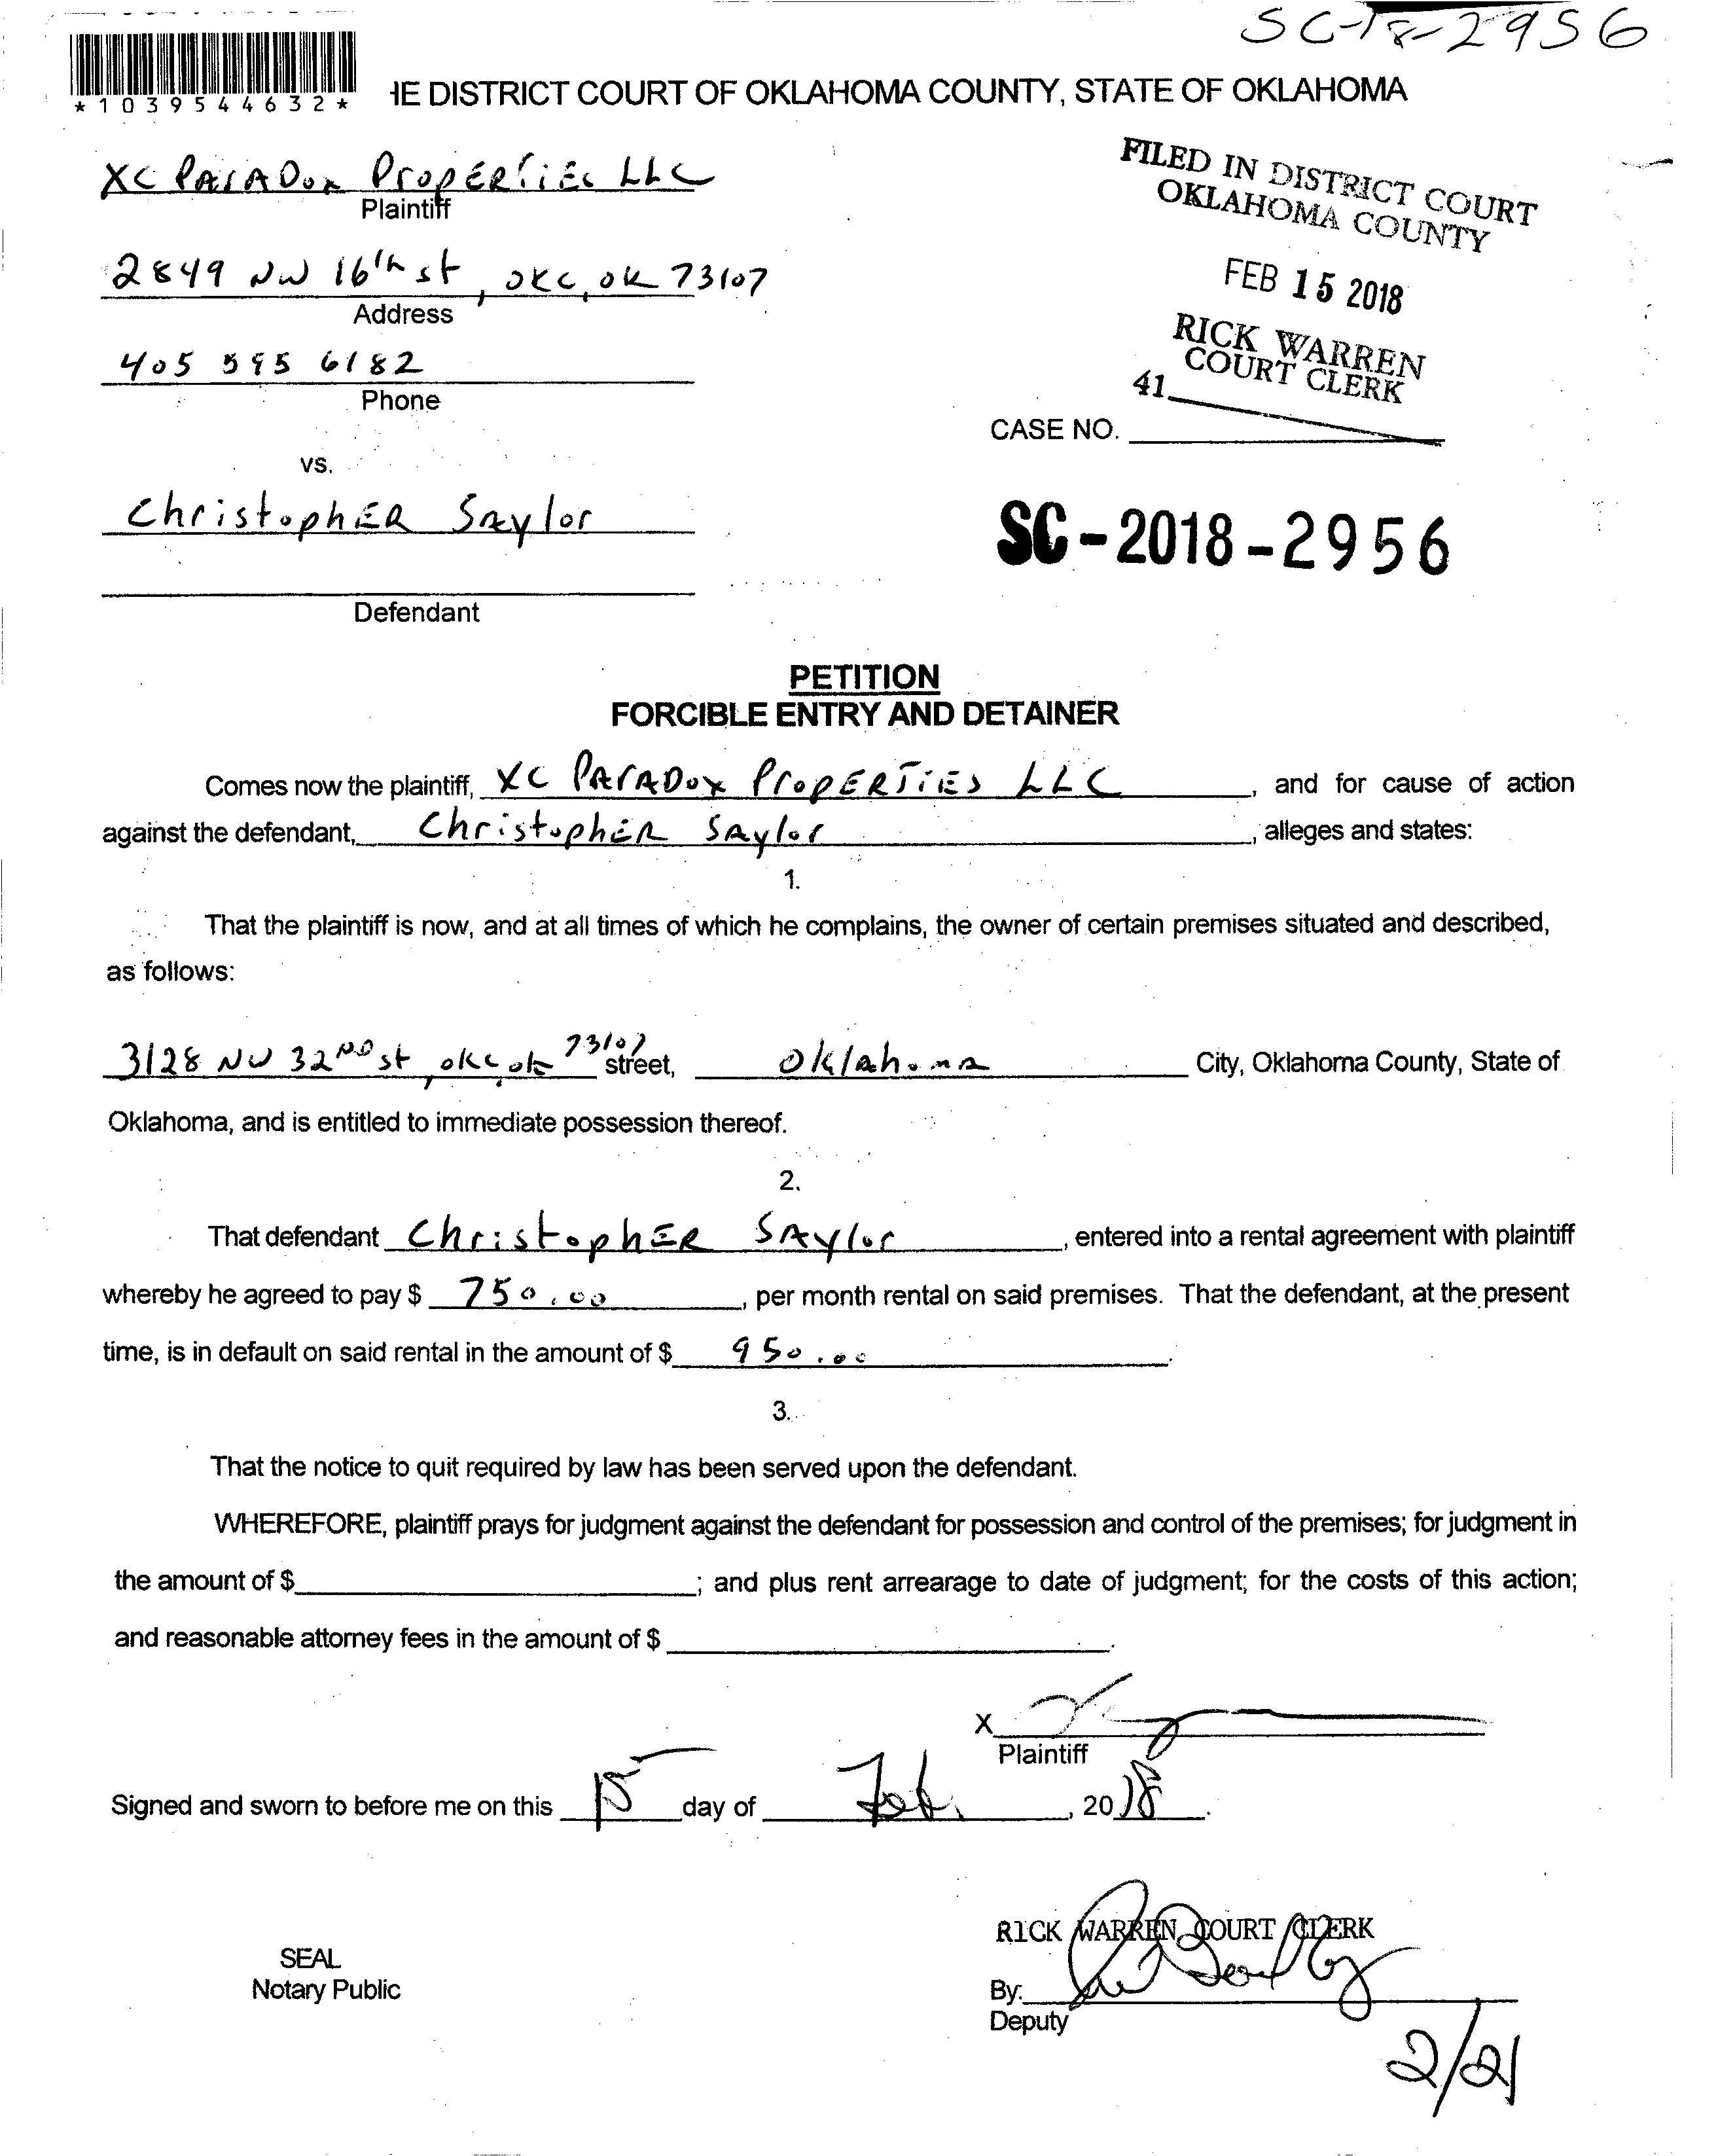 SC-18-2956
*1039544632*
HE DISTRICT COURT OF OKLAHOMA COUNTY, STATE OF OKLAHOMA
XC PArADox PropERTiEs LLC
Plaintiff
FILED IN DISTRICT COURT
OKLAHOMA COUNTY
2849 NW 16th st, OKC, OK 73107
Address
FEB 15 2018
RICK WARREN
COURT CLERK
41
405 595 6182
Phone
CASE NO.
vs.
ChristophER SAylor
SC-2018-2956
Defendant
PETITION
FORCIBLE ENTRY AND DETAINER
Comes now the plaintiff, XC PArADox ProPERTiES LLC, and for cause of action
against the defendant, ChristophER SAylor, alleges and states:
1.
That the plaintiff is now, and at all times of which he complains, the owner of certain premises situated and described,
as follows:
3128 NW 32ND st, okc, ok 73107 street, Oklahoma City, Oklahoma County, State of
Oklahoma, and is entitled to immediate possession thereof.
2.
That defendant ChristophER SAylor, entered into a rental agreement with plaintiff
whereby he agreed to pay $ 750.00, per month rental on said premises. That the defendant, at the present
time, is in default on said rental in the amount of $ 950.00.
3.
That the notice to quit required by law has been served upon the defendant.
WHEREFORE, plaintiff prays for judgment against the defendant for possession and control of the premises; for judgment in
the amount of $ ; and plus rent arrearage to date of judgment; for the costs of this action;
and reasonable attorney fees in the amount of $ .
X
Plaintiff
Signed and sworn to before me on this 15 day of Feb., 2018.
RICK WARREN COURT CLERK
SEAL
Notary Public
By:
Deputy
2/21